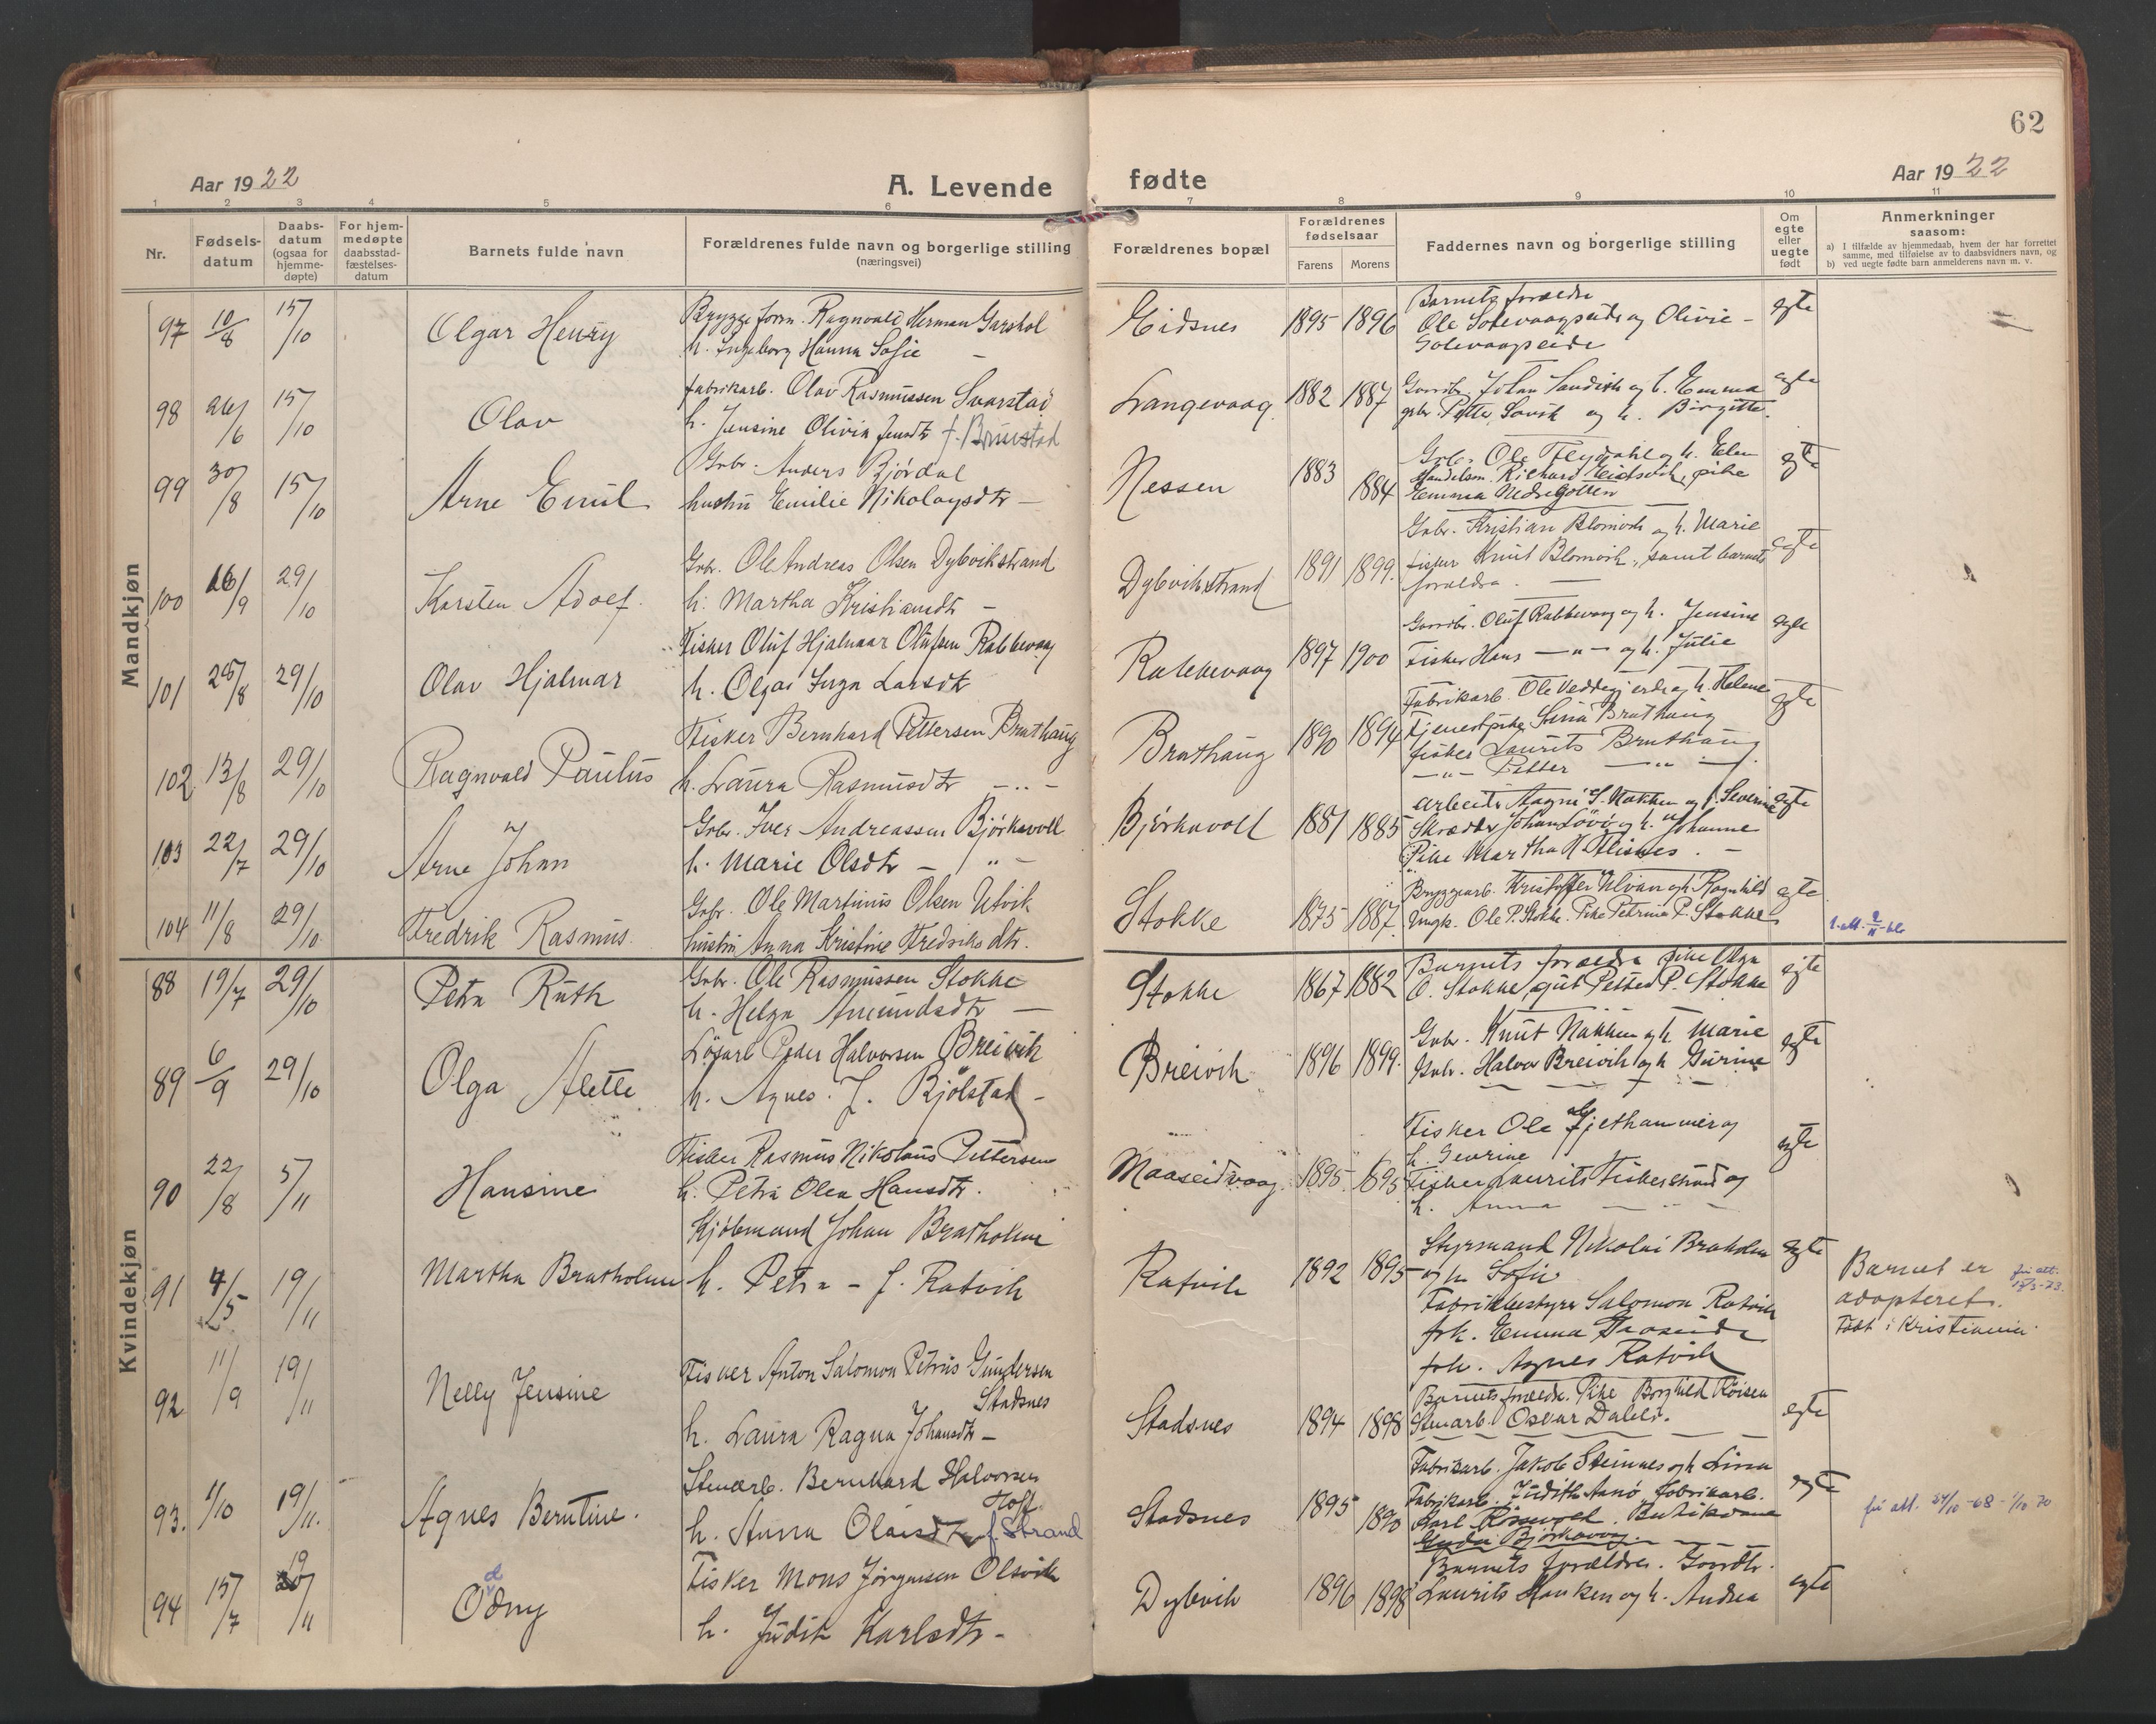 62
Aar 1922
A. Levende
fødte
Aar 1922
1 2 3 4 5 6 7 8 9 10 11
Nr.
Fødsels-
datum
Daabs-
datum
(ogsaa for
hjemme-
døpte)
For hjem-
medøpte
daabsstad-
fæstelses-
datum
Barnets fulde navn
Forældrenes fulde navn og borgerlige stilling
(næringsvei)
Forældrenes bopæl
Forældrenes
fødselsaar
Farens
Morens
Faddernes navn og borgerlige stilling
Om
egte
eller
uegte
født
Anmerkninger
saasom:
a) I tilfælde av hjemmedaab, hvem der har forrettet
samme, med tilføielse av to daabsvidners navn, og
b) ved uegte fødte barn anmelderens navn m. v.
Mandkjøn
97 10/8 15/10 Olgar Henry
Bryggeform. Ragnvald Herman Garshol
h. Ingeborg Hanna Sofie —
Eidsnes 1895 1896
Barnets forældre
Ole Solevaagseide og Olivie —
Solevaagseide
egte
98 26/6 15/10 Olav
Fabrikarb. Olav Rasmussen Svarstad
h. Jensine Olivia Jensdtr f. Brunstad
Langevaag 1882 1887
Gaardbr. Johan Sandvik og h. Emma
gbr. Petter Savik og h. Birgitte.
egte
99 30/8 15/10 Arne Emil
Gbr. Anders Bjørdal
hustru Emilie Nikolaysdtr —
Nessen 1883 1884
Gbr. Ole Fleydahl og h. Elen
Handelsm. Richard Eidsvik, pike
Emma Nedregotten
egte
100 16/9 29/10 Karsten Adolf.
Gbr. Ole Andreas Olsen Dybvikstrand
h. Martha Kristiansdtr —
Dybvikstrand 1891 1899.
Gbr. Kristian Blomvik og h. Marie
Fisker Knut Blomvik, samt barnets
forældre. —
egte
101 25/8 29/10 Olav Hjalmar
Fisker Oluf Hjalmar Olufsen Rabbevaag
h. Olgai Inga Larsdtr
Rabbevaag 1897 1900
Gaardbr. Oluf Rabbevaag og h. Jensine
Fisker Hans —"— og h. Julie
egte
102 13/8 29/10 Ragnvald Paulus
Fisker Bernhard Pettersen Brathaug
h. Laura Rasmusdtr —"—
Brathaug 1890 1894
Fabrikarb. Ole Veddegjerde og h. Helene
Tjenestpike Sina Brathaug
fisker Laurits Brathaug
—"— Petter —"—.
egte
103 22/7 29/10 Arne Johan
Gbr. Iver Andreassen Bjørkavoll
h. Marie Olsdtr — " —
Bjørkavoll 1881 1885
Arbeider Magne S. Nakken og h. Severine
Skrædder Johan Løvø og h. Johanne
Pike Martha K. Flisnes. —
egte
104 11/8 29/10 Fredrik Rasmus.
Gbr. Ole Martinus Olsen Utvik
hustru Anna Kristine Fredriksdtr.
Stokke 1875 1887.
Bryggearb. Kristoffer Ulvan og h. Ragnhild
Ungk. Ole P. Stokke. Pike Petrina P. Stokke
egte
Kvindekjøn
88 19/7 29/10 Petra Ruth
Gbr. Ole Rasmussen Stokke
h. Helga Amundsdtr —
Stokke 1867 1882
Barnets forældre pike Olga
O. Stokke, gut Petter P. Stokke
egte
89 6/9 29/10 Olga Alette
Løsarb Peder Halvorsen Breivik
h. Agnes. J. Bjølstad —
Breivik 1896 1899.
Gbr. Knut Nakken og h. Marie
Gbr. Halvor Breivik og h. Gurine
egte
90 22/8 5/11 Hansine
Fisker Rasmus Nikolaus Pettersen
h. Petra Olea Hansdtr.
Maaseidvaag. 1895. 1895
Fisker Ole Fjelhammer og
h. Severine
Fisker Laurits Fiskerstrand og
h. Anna —
egte
91 4/5 19/11 Martha Bratholm
Kjøbmand Johan Bratholm
h. Petra — f. Ratvik
Ratvik 1892 1895
Styrmand Nikolai Bratholm
og h. Sofie
Fabrikbestyrer Salomon Ratvik
frk. Emma
frk. Agnes Ratvik
egte
Barnet er
adopteret.
Født i Kristiania.
92 11/9 19/11 Nelly Jensine
Fisker Anton Salomon Petrus Gundersen
Stadsnes
h. Laura Ragna Johansdtr —
Stadsnes 1894 1898
Barnets forældre. Pike Borghild Røisen
Stenarb. Oskar Dalelv.
egte
93. 1/10 19/11. Agnes Berntine.
Stenarb. Bernhard Halvorsen
Toft
h. Anna Olaisdtr f. Strand
Stadsnes 1895 1890
Fabrikarb. Jakob Steinnes og h. Lina
Fabrikarb. Judith Aanø fabrikarb.
Karl Rossevol. Butikdame
Gyda Bjørkavaag.
egte
fu att. 24/10-68 - 1/10 70
94 15/7 19/11 Odny
Fisker Mons Jørgensen Olsvik
h. Judith Karlsdtr —
Dybvik 1896 1898
Barnets forældre. Gaardbr.
Laurits Hauken og h. Andrea
egte